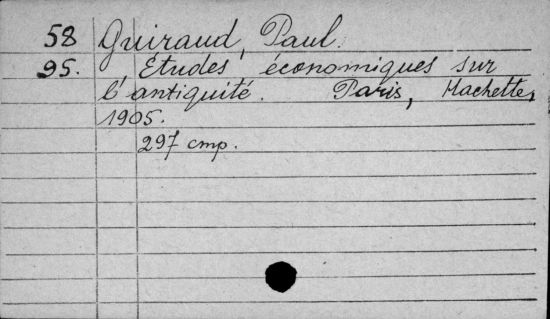 58 Guiraud, Paul.
95. Études économiques sur
l'antiquité. Paris, Hachette,
1905.
297 стр.